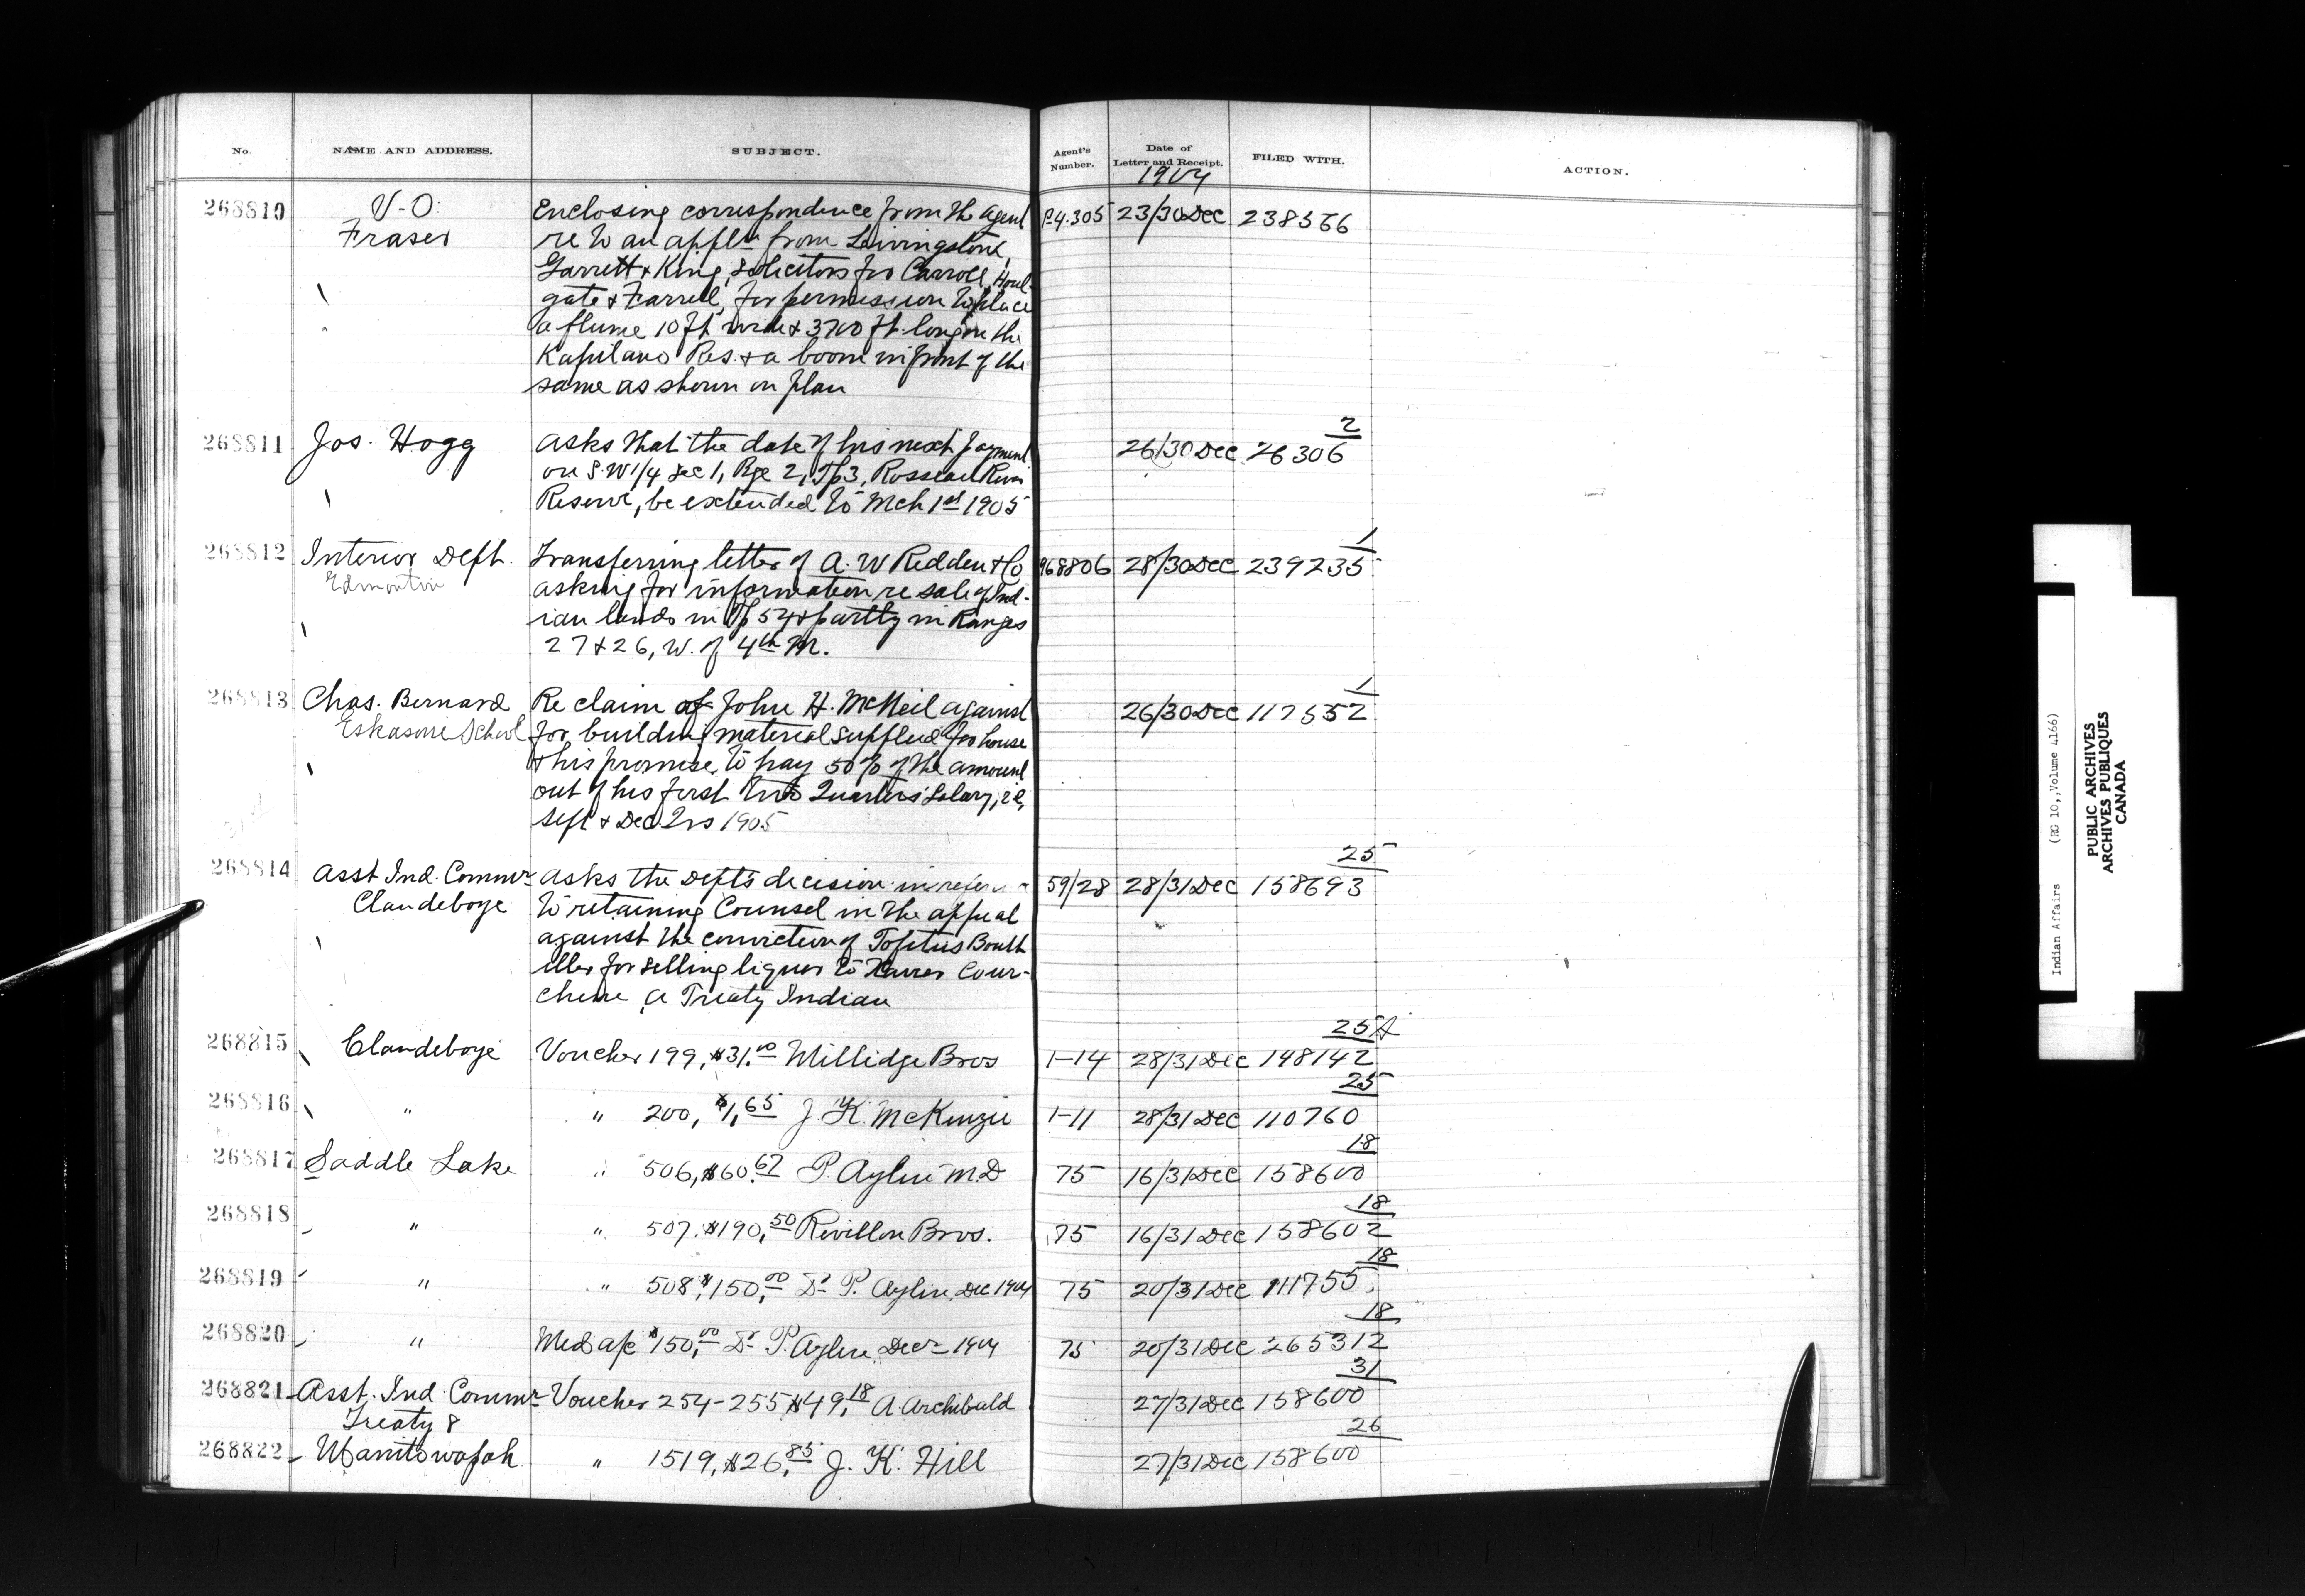 No. NAME AND ADDRESS. SUBJECT. Agent's Number. Date of Letter and Receipt. FILED WITH. ACTION.
1904
268810 V-O: Enclosing correspondence from the Agent P.4.305 23/30 Dec 238566
Fraser re to an appln from Livingstone,
Garrett & King, Solicitors for Carroll, Houl-
gate & Farrell, for permission to place
a flume 10 ft wide & 3700 ft long on the
Kapilano Res. & a boom in front of the
same as shown on plan
2
268811 Jos. Hogg Asks that the date of his next payment 26/30 Dec 26306
on S.W 1/4 Sec 1, Rge 2, Tp 3, Rosseau River
Reserve, be extended to Mch 1st 1905
1
268812 Interior Dept. Transferring letter of A. W Redden & Co 968806 28/30 Dec 239235
Edmonton asking for information re sale of Ind-
ian lands in Tp 54 & partly in Ranges
27 & 26, W. of 4th M.
1
268813 Chas. Bernard Re claim of John H. McNeil against 26/30 Dec 117552
Eskasoni School for building material supplied for house
& his promise to pay 50% of the amount
out of his first two Quarters' Salary, i.e,
Sept & Dec. Qrs 1905
25
268814 Asst Ind. Commr Asks the Dept's decision in refer 59/28 28/31 Dec 158693
Clandeboye to retaining Counsel in the appeal
against the conviction of Tofitus Bouth
illier for selling liquor to Cour-
chene, a Treaty Indian
25 A
268815 Clandeboye Voucher 199, $31.00 Millidge Bros 1-14 28/31 Dec 148142
25
268816 " " 200, $1,65 J. K. McKenzie 1-11 28/31 Dec 110760
18
268817 Saddle Lake " 506, $60.67 P. Aylen M.D 75 16/31 Dec 158600
18
268818 " " 507. $190,50 Revillon Bros. 75 16/31 Dec 158602
18
268819 " " 508, $150,00 Dr P. Aylen, Dec 1904 75 20/31 Dec 111755
18
268820 " Med a/c $150,00 Dr P. Aylen, Decr 1904 75 20/31 Dec 265312
31
268821 Asst. Ind. Commr Voucher 254-255 $49,18 A. Archibald 27/31 Dec 158600
Treaty 8
26
268822 Manitowapah " 1519, $26,85 J. K. Hill 27/31 Dec 158600
Indian Affairs (RG 10, Volume 4166)
PUBLIC ARCHIVES
ARCHIVES PUBLIQUES
CANADA